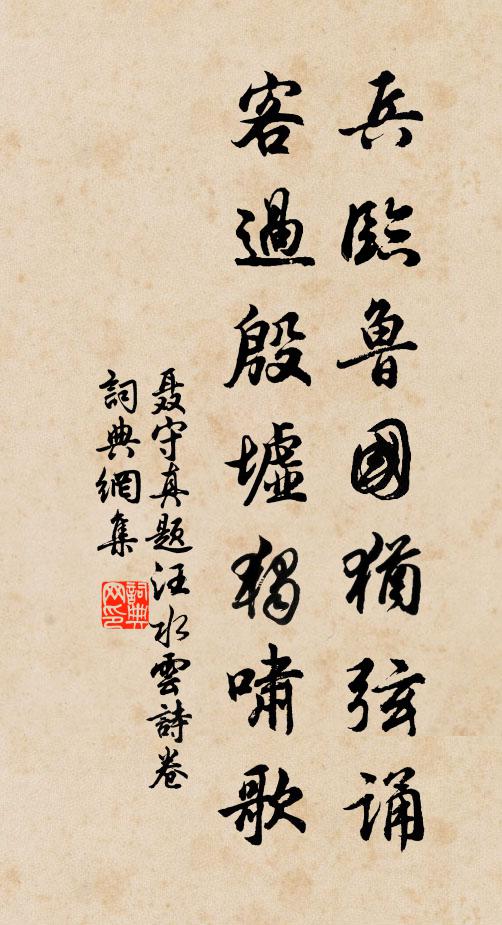 兵臨魯國猶弦诵
客過殷墟獨嘯歌
聂守真题汪水雲詩卷
詞典網集
詞典網印